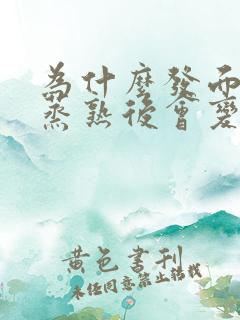 為什麼發而
蒸熟後會變
黃色書刊
未经同意禁止转载